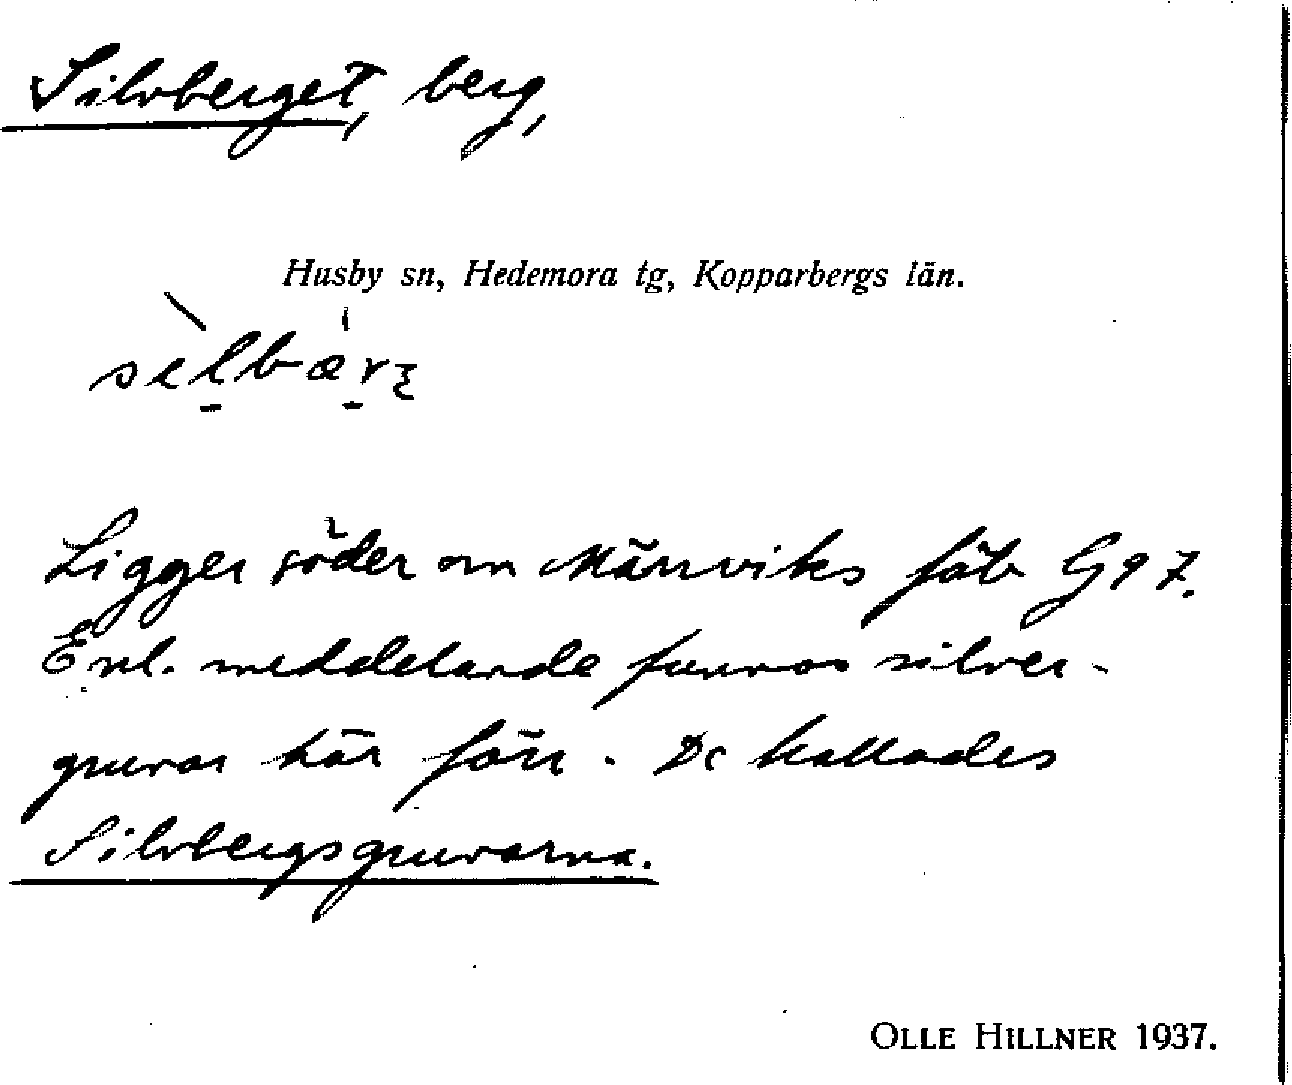 Silvberget, berg,
Husby sn, Hedemora tg, Kopparbergs län.
Ligger söder om Märrviks fäb G97.
Enl. meddelande funnos silver-
gruvor här förr. De kallades
Silvbergsgruvorna.
OLLE HILLNER 1937.